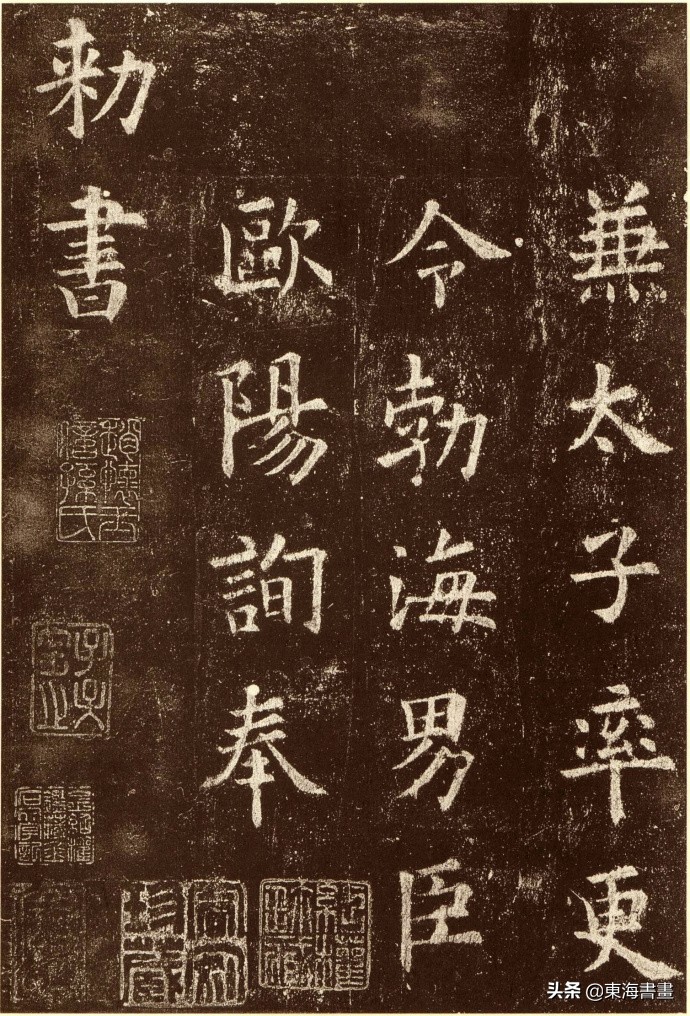 兼太子率更
令勃海男臣
歐陽詢奉
勅書
头条 @東海書畫